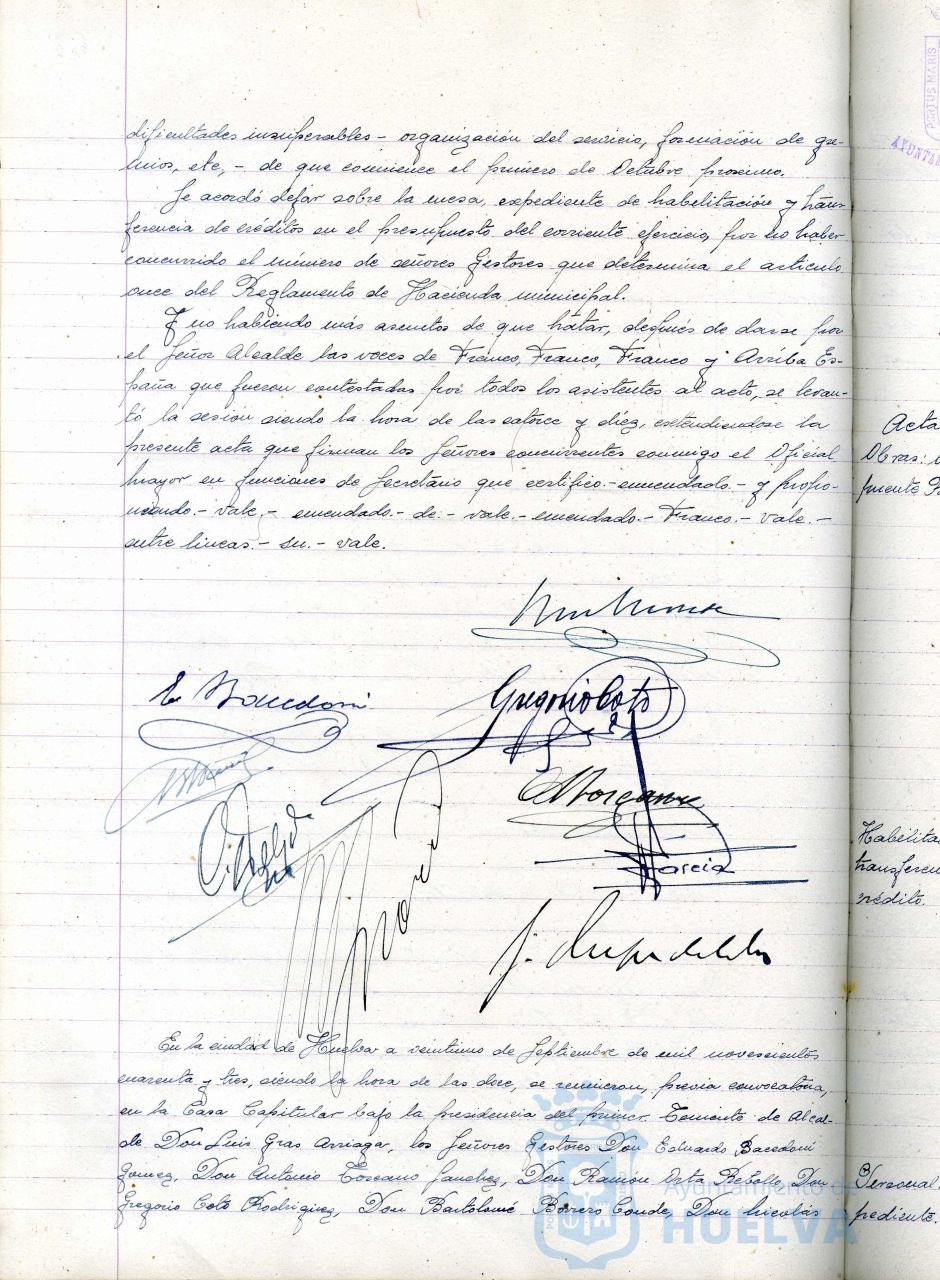 dificultades insuperables - organización del servicio, formación de gre-
mios, etc, - de que comience el primero de Octubre proximo.
Se acordó dejar sobre la mesa, expediente de habilitación y trans-
ferencia de créditos en el presupuesto del corriente ejercicio, por no haber
concurrido el número de señores Gestores que determina el articulo
once del Reglamento de Hacienda municipal.
Y no habiendo más asuntos de que tratar, después de darse por
el Señor Alcalde las voces de Franco, Franco, Franco y Arriba Es-
paña que fueron contestadas por todos los asistentes al acto, se levan-
tó la sesion siendo la hora de las catorce y diez, extendiendose la
presente acta que firman los Señores concurrentes conmigo el Oficial
mayor en funciones de Secretario que certifico.- enmendado.- y propo-
niendo.- vale,- emendado.- de.- vale.- emendado.- Franco.- vale.-
entre lineas.- su.- vale.
Gregorio Coto
García
En la ciudad de Huelva a veintiuno de Septiembre de mil novescientos
cuarenta y tres, siendo la hora de las doce, se reunieron, previa convocatoria,
en la Casa Capitular bajo la presidencia del primer Teniente de Alcal-
de Don Luis Gras Arriaga, los Señores Gestores Don Eduardo Bacedoni
Gomez, Don Antonio Toscano Sanchez, Don Ramón Orta Rebollo, Don
Gregorio Coto Rodriguez, Don Bartolomé Borrero Conde, Don Nicolás
Acta
Obras:
puente
Habilita
transferen
crédito.
Personal.
pediente.
Ayuntamiento de
HUELVA